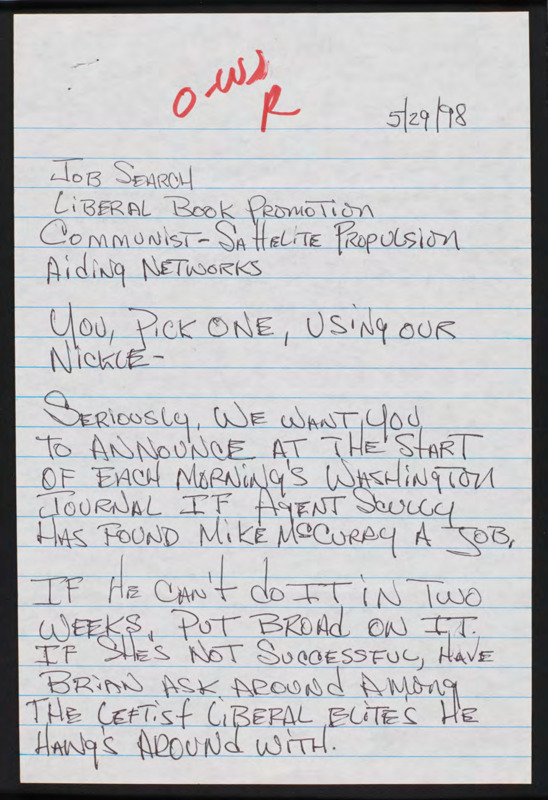 O-WJ
R
5/29/98
JOB SEARCH
LIBERAL BOOK PROMOTION
COMMUNIST-SATTELITE PROPULSION
AIDING NETWORKS
YOU, PICK ONE, USING OUR
NICKLE-
SERIOUSLY, WE WANT YOU
TO ANNOUNCE AT THE START
OF EACH MORNING'S WASHINGTON
JOURNAL IF AGENT SCULLY
HAS FOUND MIKE McCURRY A JOB.
IF HE CAN'T do IT IN TWO
WEEKS, PUT BROAD ON IT.
IF SHE'S NOT SUCCESSFUL, HAVE
BRIAN ASK AROUND AMONG
THE LEFTIST LIBERAL ELITES HE
HANG'S AROUND WITH.